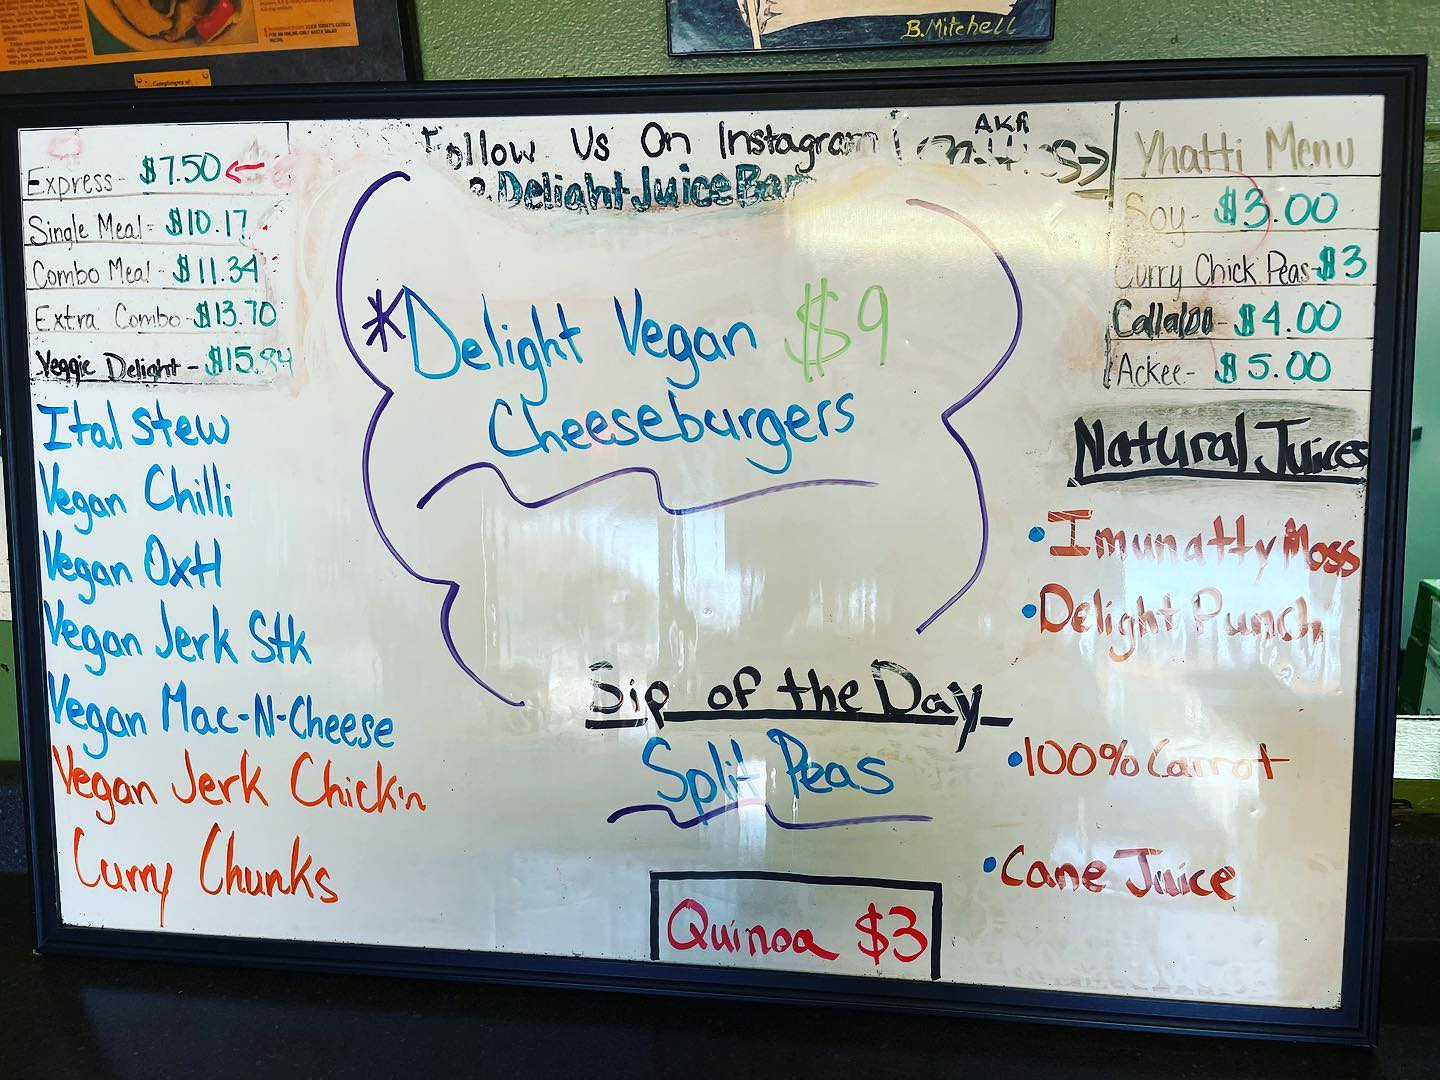 B. Mitchell
Express - $7.50
Single Meal - $10.17
Combo Meal - $11.34
Extra Combo - $13.70
Veggie Delight - $15.94
Ital Stew
Vegan Chilli
Vegan Oxtl
Vegan Jerk Stk
Vegan Mac-N-Cheese
Vegan Jerk Chick'n
Curry Chunks
Follow Us On Instagram
DelightJuiceBar
*Delight Vegan $9
Cheeseburgers
Sip of the Day
Split Peas
Quinoa $3
AKA
Yhatti Menu
Soy - $3.00
Curry Chick Peas - $3
Callaloo - $4.00
Ackee - $5.00
Natural Juices
•Imunatty Moss
•Delight Punch
•100% Carrot
•Cane Juice